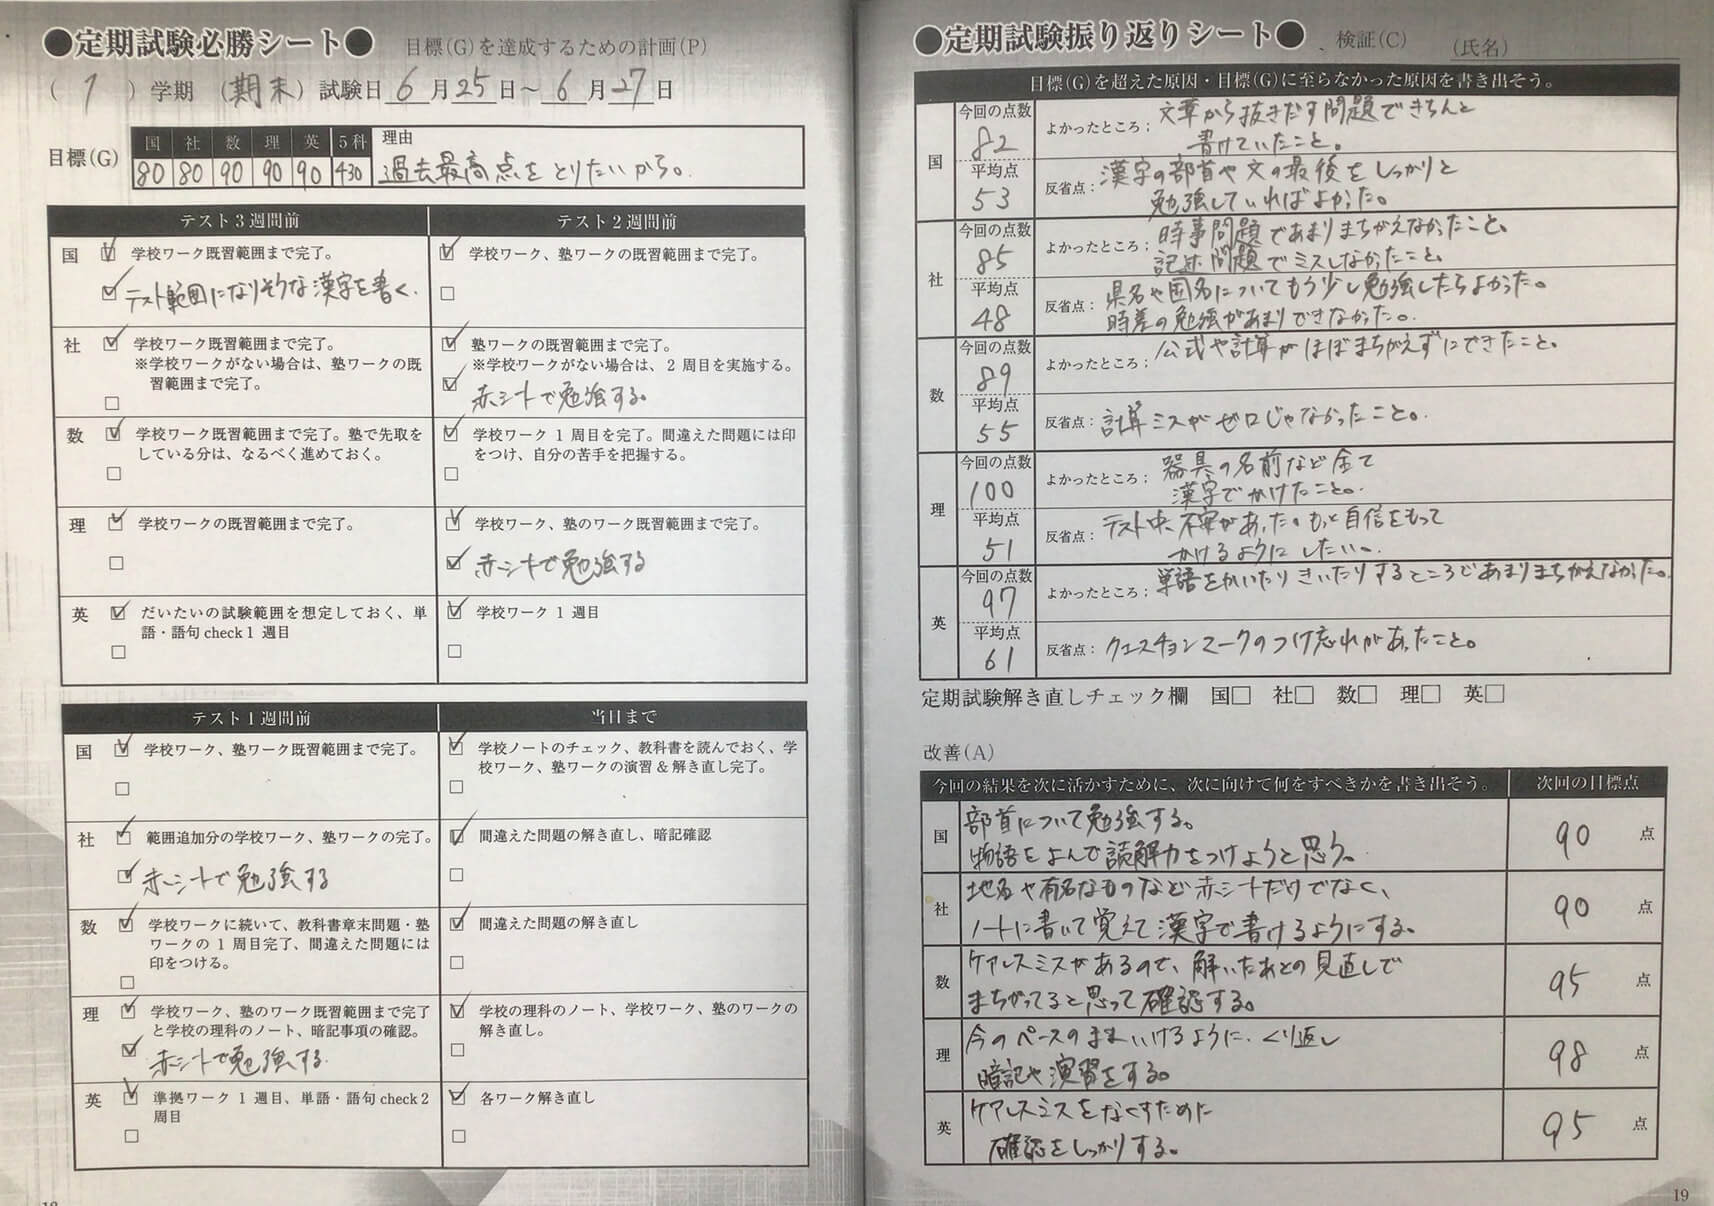 ●定期試験必勝シート● 目標(G)を達成するための計画(P)
( 1 ) 学期 (期末) 試験日 6月25日～6月27日
目標(G)
国 社 数 理 英 5科 理由
80 80 90 90 90 430 過去最高点をとりたいから。
テスト3週間前
テスト2週間前
国 学校ワーク既習範囲まで完了。
テスト範囲になりそうな漢字を書く.
学校ワーク、塾ワークの既習範囲まで完了。
社 学校ワーク既習範囲まで完了。
※学校ワークがない場合は、塾ワークの既
習範囲まで完了。
塾ワークの既習範囲まで完了。
※学校ワークがない場合は、2周目を実施する。
赤シートで勉強する。
数 学校ワーク既習範囲まで完了。塾で先取を
している分は、なるべく進めておく。
学校ワーク1周目を完了。間違えた問題には印
をつけ、自分の苦手を把握する。
理 学校ワークの既習範囲まで完了。
学校ワーク、塾のワーク既習範囲まで完了。
赤シートで勉強する
英 だいたいの試験範囲を想定しておく、単
語・語句check1週目
学校ワーク1週目
テスト1週間前
当日まで
国 学校ワーク、塾ワーク既習範囲まで完了。
学校ノートのチェック、教科書を読んでおく、学
校ワーク、塾ワークの演習＆解き直し完了。
社 範囲追加分の学校ワーク、塾ワークの完了。
赤シートで勉強する
間違えた問題の解き直し、暗記確認
数 学校ワークに続いて、教科書章末問題・塾
ワークの1周目完了、間違えた問題には
印をつける。
間違えた問題の解き直し
理 学校ワーク、塾のワーク既習範囲まで完了
と学校の理科のノート、暗記事項の確認。
赤シートで勉強する.
学校の理科のノート、学校ワーク、塾のワークの
解き直し。
英 準拠ワーク1週目、単語・語句check2
周目
各ワーク解き直し
●定期試験振り返りシート● 検証(C) (氏名)
目標(G)を超えた原因・目標(G)に至らなかった原因を書き出そう。
国 今回の点数
82
平均点
53
よかったところ； 文章から抜きだす問題できちんと
書けていたこと。
反省点： 漢字の部首や文の最後をしっかりと
勉強していればよかった。
社 今回の点数
85
平均点
48
よかったところ； 時事問題であまりまちがえなかったこと。
記述問題でミスしなかったこと。
反省点： 県名や国名についてもう少し勉強したらよかった。
時差の勉強があまりできなかった。
数 今回の点数
89
平均点
55
よかったところ； 公式や計算がほぼまちがえずにできたこと。
反省点： 計算ミスがゼロじゃなかったこと。
理 今回の点数
100
平均点
51
よかったところ； 器具の名前など全て
漢字でかけたこと。
反省点： テスト中、不安があった。もっと自信をもって
かけるようにしたい。
英 今回の点数
97
平均点
61
よかったところ； 単語をかいたりきいたりするところであまりまちがえなかった。
反省点： クエスチョンマークのつけ忘れがあったこと。
定期試験解き直しチェック欄 国□ 社□ 数□ 理□ 英□
改善(A)
今回の結果を次に活かすために、次に向けて何をすべきかを書き出そう。 次回の目標点
国 部首について勉強する。
物語をよんで読解力をつけようと思う。
90 点
社 地名や有名なものなど赤シートだけでなく、
ノートに書いて覚えて漢字で書けるようにする。
90 点
数 ケアレスミスがあるので、解いたあとの見直しで
まちがってると思って確認する。
95 点
理 今のペースのままいけるように、くり返し
暗記や演習をする。
98 点
英 ケアレスミスをなくすために
確認をしっかりする。
95 点
19